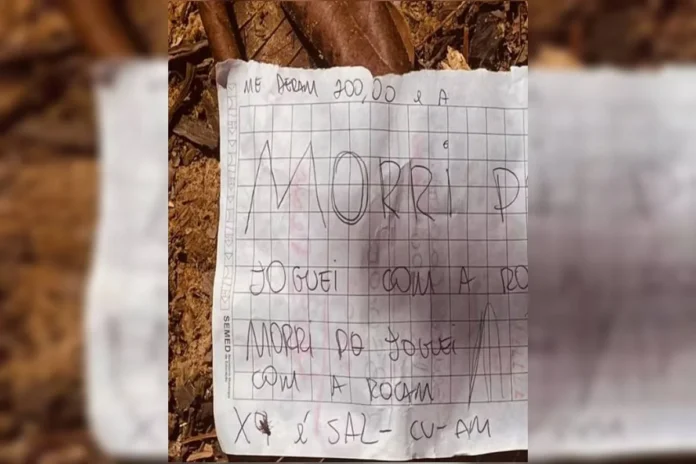 ME DERAM 200,00 e A
MORRi P
JOGUEI COM A RO
MORRI PQ JOGUEI
COM A ROCAM
é SAL-CU-AM
SEMED